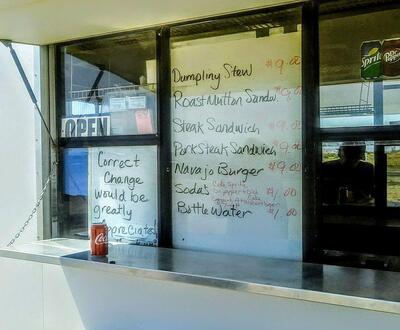 OPEN
Correct
Change
would be
greatly
Appreciated
Dumpling Stew $9.00
Roast Mutton Sandw. $9.00
Steak Sandwich $9.00
Pork Steak Sandwich $9.00
Navajo Burger $9.00
Soda's Coke Sprite $1.00
Dr. pepper Diet Coke
Bottle Water $1.00
Sprite
Dr Pepper
Coca-Cola